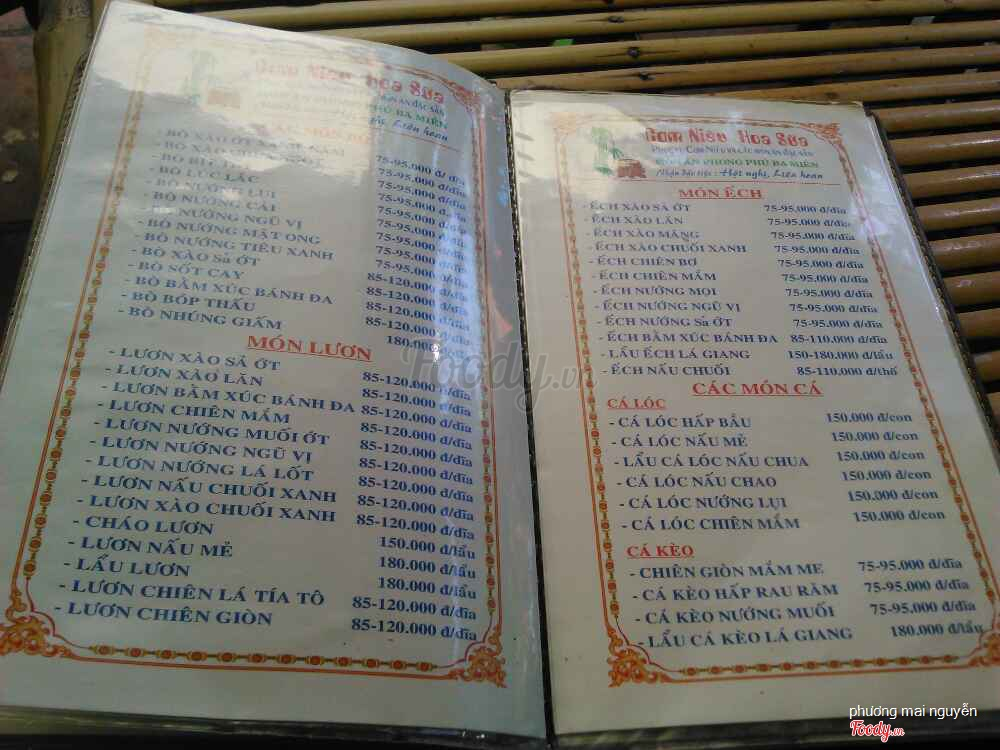 Cơm Niêu Hoa Sữa
PHÚ BA MIỀN
nghị, Liên hoan
- BÒ XÀO
- BÒ LÚC LẮC
- BÒ NƯỚNG LỤI
- BÒ NƯỚNG CẢI
- BÒ NƯỚNG NGŨ VỊ
- BÒ NƯỚNG MẬT ONG
- BÒ NƯỚNG TIÊU XANH
- BÒ XÀO Sả ỚT
- BÒ SỐT CAY
- BÒ BẰM XÚC BÁNH ĐA
- BÒ BÓP THẤU
- BÒ NHÚNG GIẤM
75-95.000 đ/đĩa
75-95.000 đ/đĩa
75-95.000 đ/đĩa
75-95.000 đ/đĩa
75-95.000 đ/đĩa
75-95.000 đ/đĩa
75-95.000 đ/đĩa
85-120.000 đ/đĩa
85-120.000 đ/đĩa
85-120.000 đ/đĩa
180.000
MÓN LƯƠN
- LƯƠN XÀO SẢ ỚT 85-120.000 đ/đĩa
- LƯƠN XÀO LĂN 85-120.000 đ/đĩa
- LƯƠN BẰM XÚC BÁNH ĐA 85-120.000 đ/đĩa
- LƯƠN CHIÊN MẮM 85-120.000 đ/đĩa
- LƯƠN NƯỚNG MUỐI ỚT 85-120.000 đ/đĩa
- LƯƠN NƯỚNG NGŨ VỊ 85-120.000 đ/đĩa
- LƯƠN NƯỚNG LÁ LỐT 85-120.000 đ/đĩa
- LƯƠN NẤU CHUỐI XANH 85-120.000 đ/đĩa
- LƯƠN XÀO CHUỐI XANH 85-120.000 đ/đĩa
- CHÁO LƯƠN 150.000 đ/lẩu
- LƯƠN NẤU MẺ 180.000 đ/lẩu
- LẨU LƯƠN 180.000 đ/lẩu
- LƯƠN CHIÊN LÁ TÍA TÔ 85-120.000 đ/đĩa
- LƯƠN CHIÊN GIÒN 85-120.000 đ/đĩa
Cơm Niêu Hoa Sữa
MÓN ĂN PHONG PHÚ BA MIỀN
Nhận Đặt tiệc: Hội nghị, Liên hoan
MÓN ẾCH
- ẾCH XÀO SẢ ỚT 75-95.000 đ/đĩa
- ẾCH XÀO LĂN 75-95.000 đ/đĩa
- ẾCH XÀO MĂNG 75-95.000 đ/đĩa
- ẾCH XÀO CHUỐI XANH 75-95.000 đ/đĩa
- ẾCH CHIÊN BƠ 75-95.000 đ/đĩa
- ẾCH CHIÊN MẮM 75-95.000 đ/đĩa
- ẾCH NƯỚNG MỌI 75-95.000 đ/đĩa
- ẾCH NƯỚNG NGŨ VỊ 75-95.000 đ/đĩa
- ẾCH NƯỚNG Sả ỚT 75-95.000 đ/đĩa
- ẾCH BẰM XÚC BÁNH ĐA 85-110.000 đ/đĩa
- LẨU ẾCH LÁ GIANG 150-180.000 đ/lẩu
- ẾCH NẤU CHUỐI 85-110.000 đ/thố
CÁC MÓN CÁ
CÁ LÓC
- CÁ LÓC HẤP BẦU 150.000 đ/con
- CÁ LÓC NẤU MẺ 150.000 đ/con
- LẨU CÁ LÓC NẤU CHUA 150.000 đ/con
- CÁ LÓC NẤU CHAO 150.000 đ/con
- CÁ LÓC NƯỚNG LỤI 150.000 đ/con
- CÁ LÓC CHIÊN MẮM 150.000 đ/con
CÁ KÈO
- CHIÊN GIÒN MẮM ME 75-95.000 đ/đĩa
- CÁ KÈO HẤP RAU RĂM 75-95.000 đ/đĩa
- CÁ KÈO NƯỚNG MUỐI 75-95.000 đ/đĩa
- LẨU CÁ KÈO LÁ GIANG 180.000 đ/lẩu
Foody.vn
phương mai nguyễn
Foody.vn